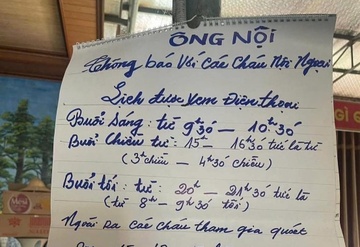 ÔNG NỘI
Thông báo Với các cháu Nội Ngoại
Lịch được xem Điện thoại
Buổi Sáng: từ 9h30 – 10h30
Buổi Chiều từ: 15h – 16h30 tức là từ
(3h chiều – 4h30 chiều)
Buổi tối: từ: 20h – 21h30 tức là
(từ 8h – 9h30 tối)
Ngoài ra các cháu tham gia quét